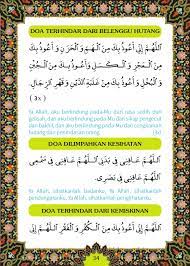 DOA TERHINDAR DARI BELENGGU HUTANG
اَللّٰهُمَّ إِنِّيْ أَعُوْذُ بِكَ مِنَ الْهَمِّ وَالْحَزَنِ وَ أَعُوْذُ بِكَ
مِنَ الْعَجْزِ وَ الْكَسَلِ وَ أَعُوْذُ بِكَ مِنَ الْجُبْنِ
وَ الْبُخْلِ وَ أَعُوْذُ بِكَ مِنْ غَلَبَةِ الدَّيْنِ وَ قَهْرِ الرِّجَالِ
( 3x )
Ya Allah, aku berlindung pada-Mu dari rasa sedih dan
gelisah, dan aku berlindung pada-Mu dari sikap pengecut
dan bakhil, dan aku berlindung pada-Mu dari cengkaman
hutang dan penindasan orang. (3x)
DOA DILIMPAHKAN KESIHATAN
اَللّٰهُمَّ عَافِنِيْ فِيْ بَدَنِيْ اَللّٰهُمَّ عَافِنِيْ فِيْ سَمْعِيْ
اَللّٰهُمَّ عَافِنِيْ فِيْ بَصَرِيْ
Ya Allah, sihatkanlah badanku, Ya Allah, sihatkanlah
pendengaranku, Ya Allah, sihatkanlah penglihatanku.
DOA TERHINDAR DARI KEMISKINAN
اَللّٰهُمَّ إِنِّيْ أَعُوْذُ بِكَ مِنَ الْكُفْرِ وَ الْفَقْرِ اَللّٰهُمَّ إِنِّيْ
34